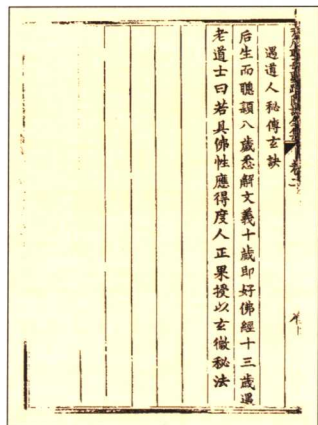 遇道人秘傳玄訣
后生而聰頴八歲悉解文義十歲即好佛經十三歲遇
老道士曰若具佛性應得度人正果授以玄微秘法